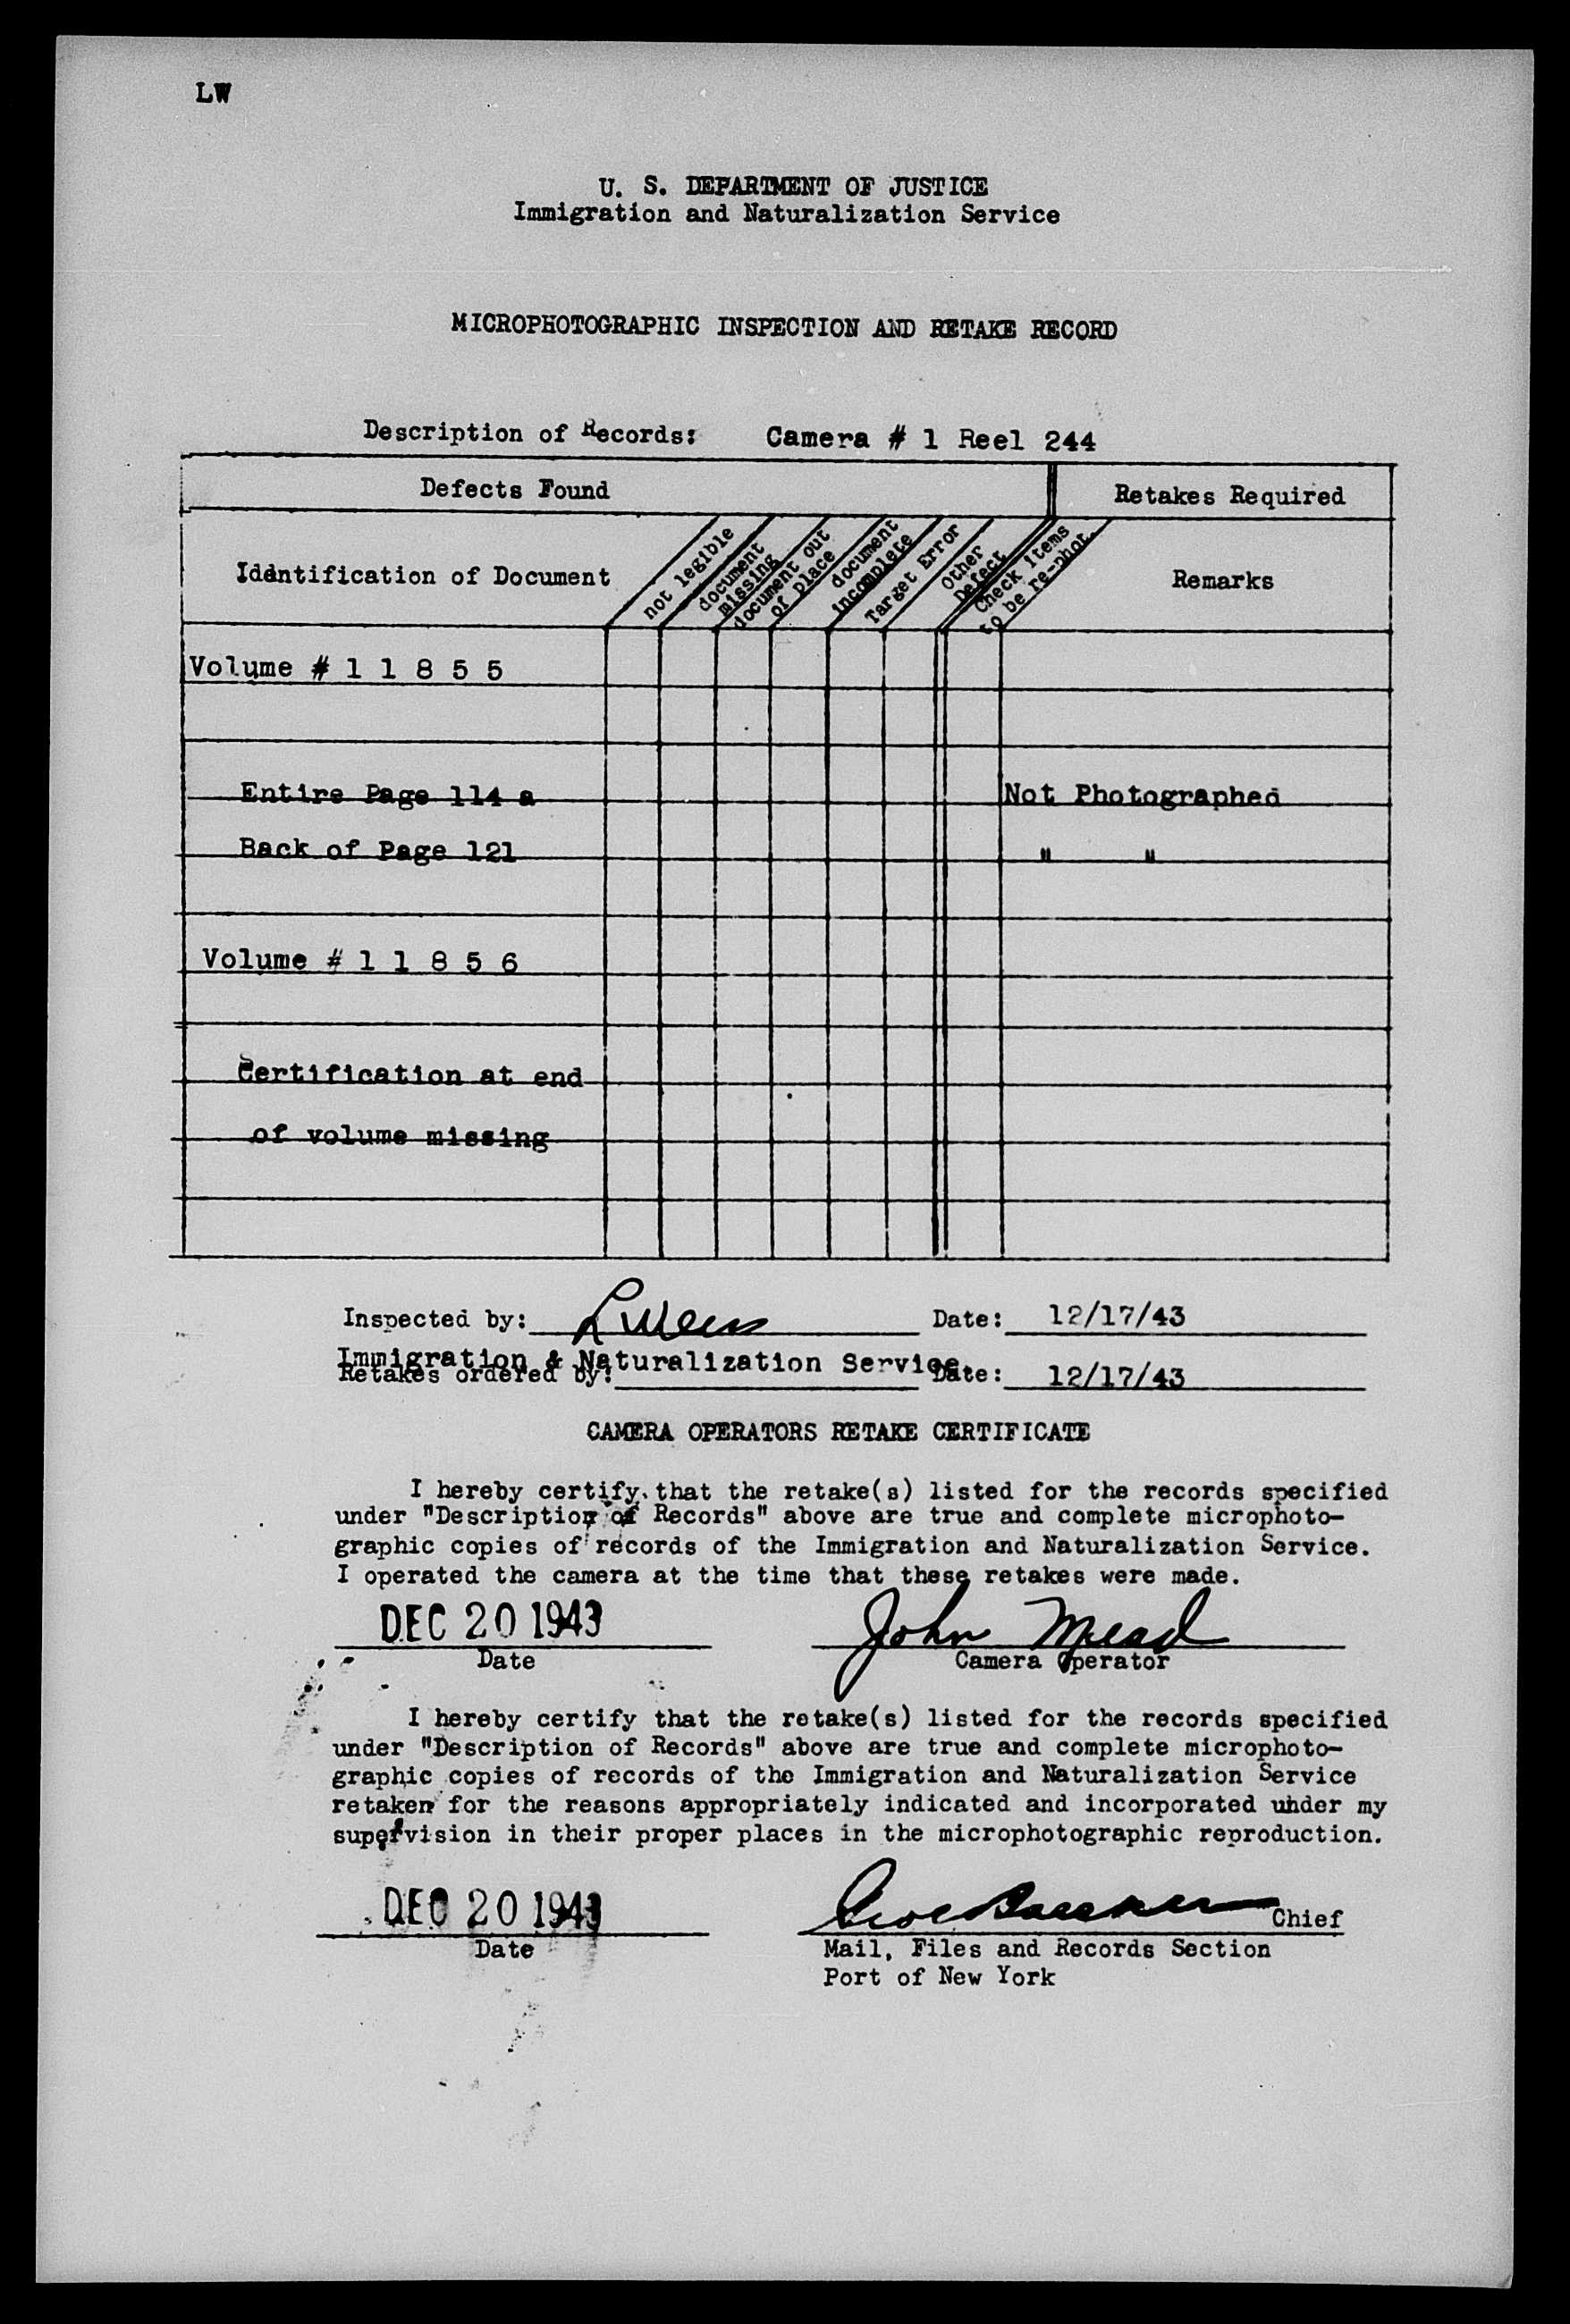 LW
U. S. DEPARTMENT OF JUSTICE
Immigration and Naturalization Service
MICROPHOTOGRAPHIC INSPECTION AND RETAKE RECORD
Description of Records: Camera # 1 Reel 244
Defects Found Retakes Required
Identification of Document
not legible
document missing
document out of place
document incomplete
Target Error
Other Defect
Check items to be re-phot.
Remarks
Volume # 1 1 8 5 5
Entire Page 114 a Not Photographed
Back of Page 121 " "
Volume # 1 1 8 5 6
Certification at end
of volume missing
Inspected by: L Weiss Date: 12/17/43
Immigration & Naturalization Service.
Retakes ordered by: Date: 12/17/43
CAMERA OPERATORS RETAKE CERTIFICATE
I hereby certify that the retake(s) listed for the records specified
under "Description of Records" above are true and complete microphoto-
graphic copies of records of the Immigration and Naturalization Service.
I operated the camera at the time that these retakes were made.
DEC 20 1943 John Mead
Date Camera Operator
I hereby certify that the retake(s) listed for the records specified
under "Description of Records" above are true and complete microphoto-
graphic copies of records of the Immigration and Naturalization Service
retaken for the reasons appropriately indicated and incorporated under my
supervision in their proper places in the microphotographic reproduction.
DEC 20 1943 Chief
Date Mail, Files and Records Section
Port of New York